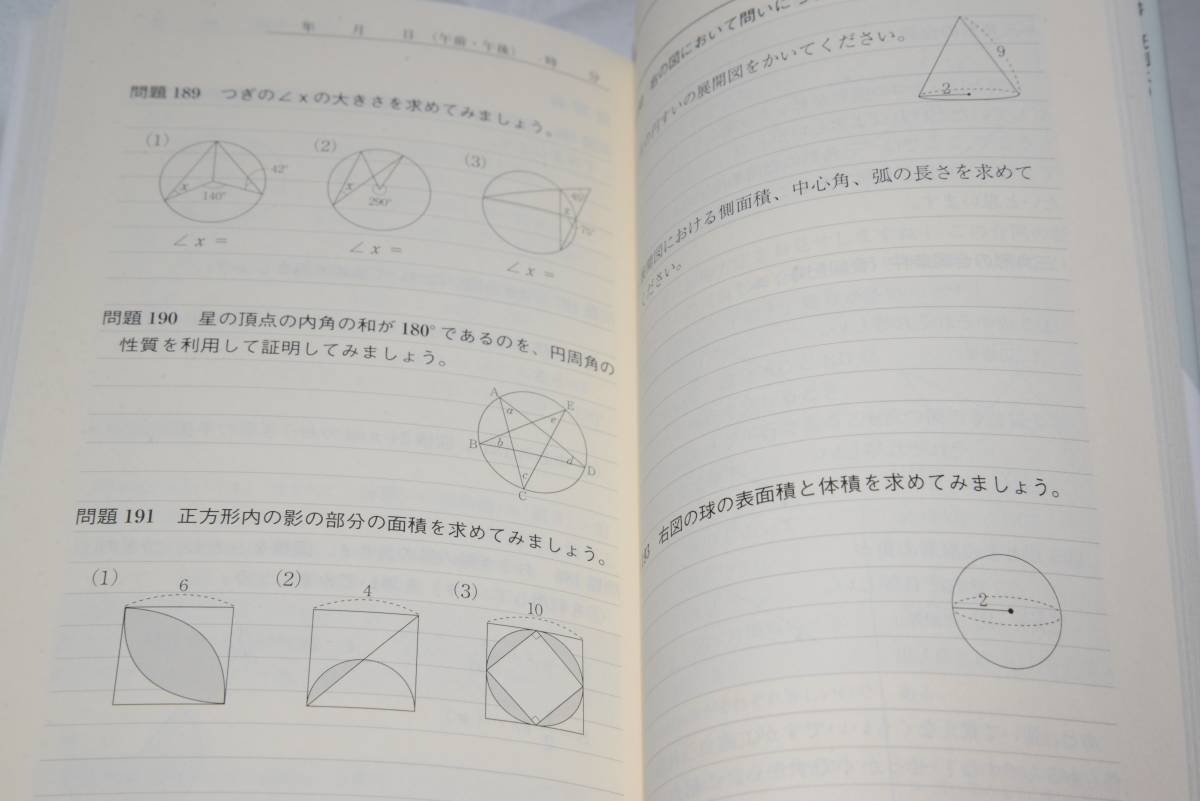 年 月 日 (午前・午後) 時 分
問題 189 つぎの∠xの大きさを求めてみましょう。
(1)
(2)
(3)
x
140°
42°
x
290°
40°
x
75°
∠x =
∠x =
∠x =
問題 190 星の頂点の内角の和が 180° であるのを、円周角の
性質を利用して証明してみましょう。
A
E
a
e
B
b
d
D
c
C
問題 191 正方形内の影の部分の面積を求めてみましょう。
(1)
(2)
(3)
6
4
10
右の図において問いに
すいの展開図をかいてください。
9
2
開図における側面積、中心角、弧の長さを求めて
ください。
右図の球の表面積と体積を求めてみましょう。
2